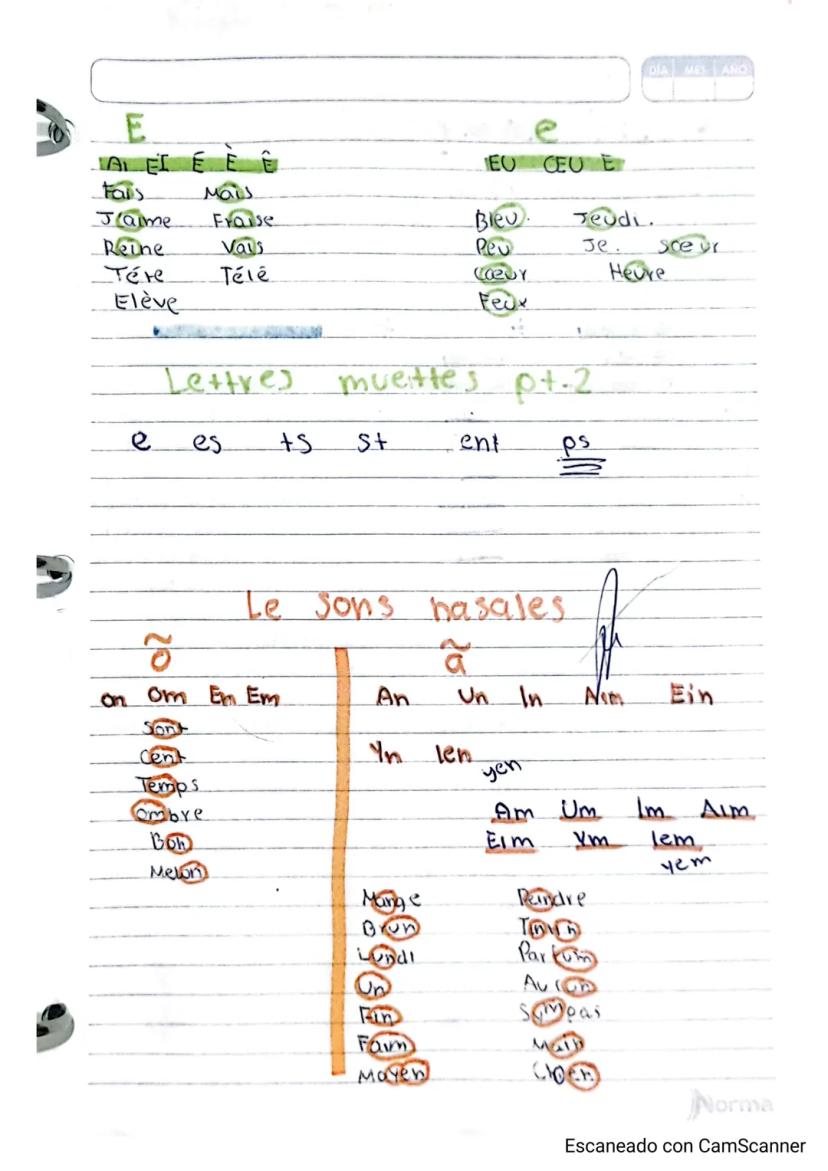 DÍA MES AÑO
E e
AI EI É È Ê EU OEU E
Fais Mais
J'aime Fraise Bleu. Jeudi.
Reine Vais Peu Je. sœur
Tére Télé Cœur Heure
Elève Feux
Lettres muettes pt.2
e es ts st ent ps
Le sons nasales
õ ã
on Om En Em An Un In Aim Ein
Sont
Cent Yn Ien yen
Temps
Ombre Am Um Im Aim
Bon Eim Ym Iem
Melon yem
Mange Peindre
Brun
Lundi Parfum
Un Aucun
Fin Sympas
Faim Main
Moyen
Norma
Escaneado con CamScanner